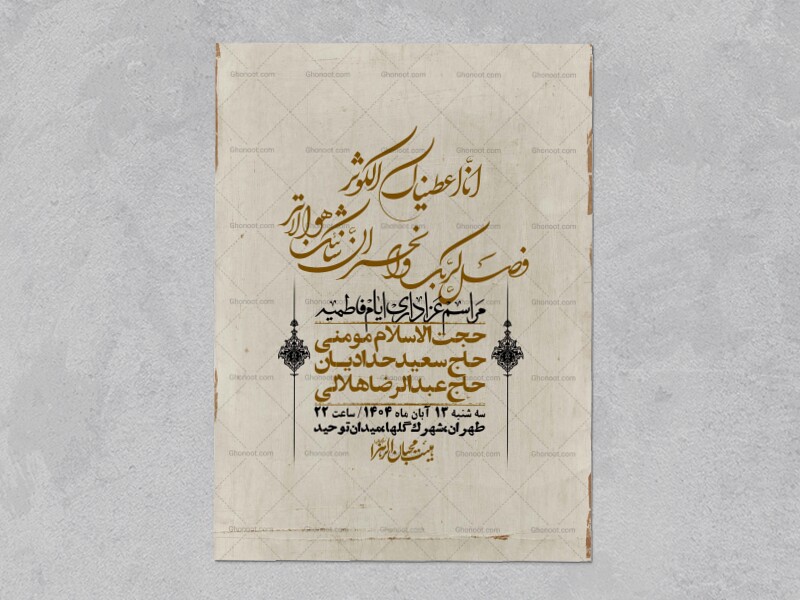 انا اعطیناک الکوثر
فصل لربک وانحر ان شانئک هو الابتر
مراسم عزاداری ایام فاطمیه
حجت الاسلام مومنی
حاج سعید حدادیان
حاج عبدالرضا هلالی
سه شنبه ۱۳ آبان ماه ۱۴۰۴/ ساعت ۲۲
طهران، شهرک گلها، میدان توحید
هیئت محبان الزهرا
Ghonoot.com